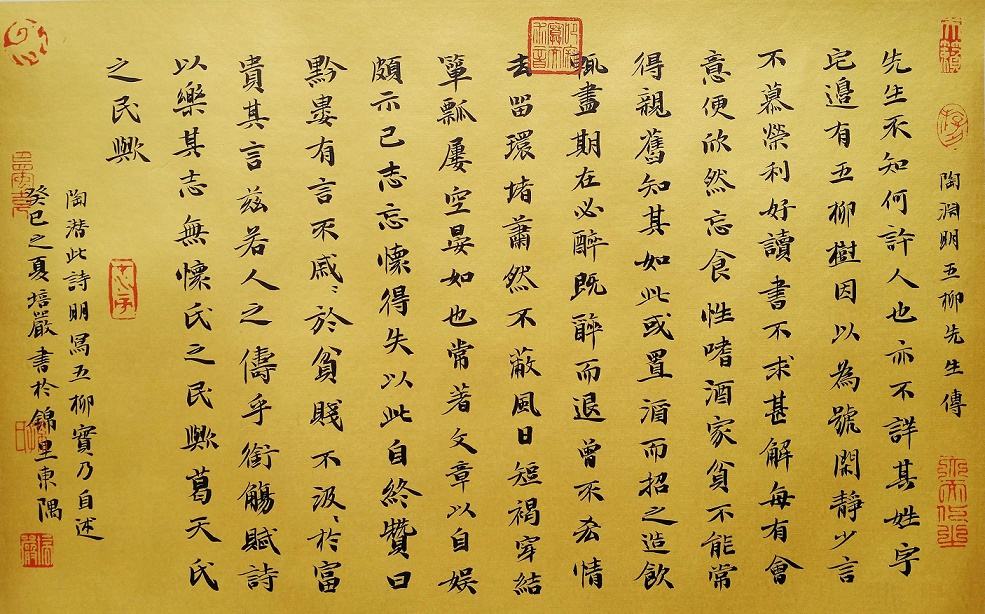 陶渊明五柳先生傳
先生不知何許人也亦不詳其姓字
宅邊有五柳樹因以為號閑靜少言
不慕榮利好讀書不求甚解每有會
意便欣然忘食性嗜酒家貧不能常
得親舊知其如此或置酒而招之造飲
輒盡期在必醉既醉而退曾不吝情
去留環堵蕭然不蔽風日短褐穿結
簞瓢屢空晏如也常著文章以自娛
頗示己志忘懷得失以此自終贊曰
黔婁有言不戚〻於貧賤不汲〻於富
貴其言茲若人之儔乎銜觴賦詩
以樂其志無懷氏之民歟葛天氏
之民歟
陶潜此詩明寫五柳實乃自述
癸巳之夏培嚴書於錦里東隅